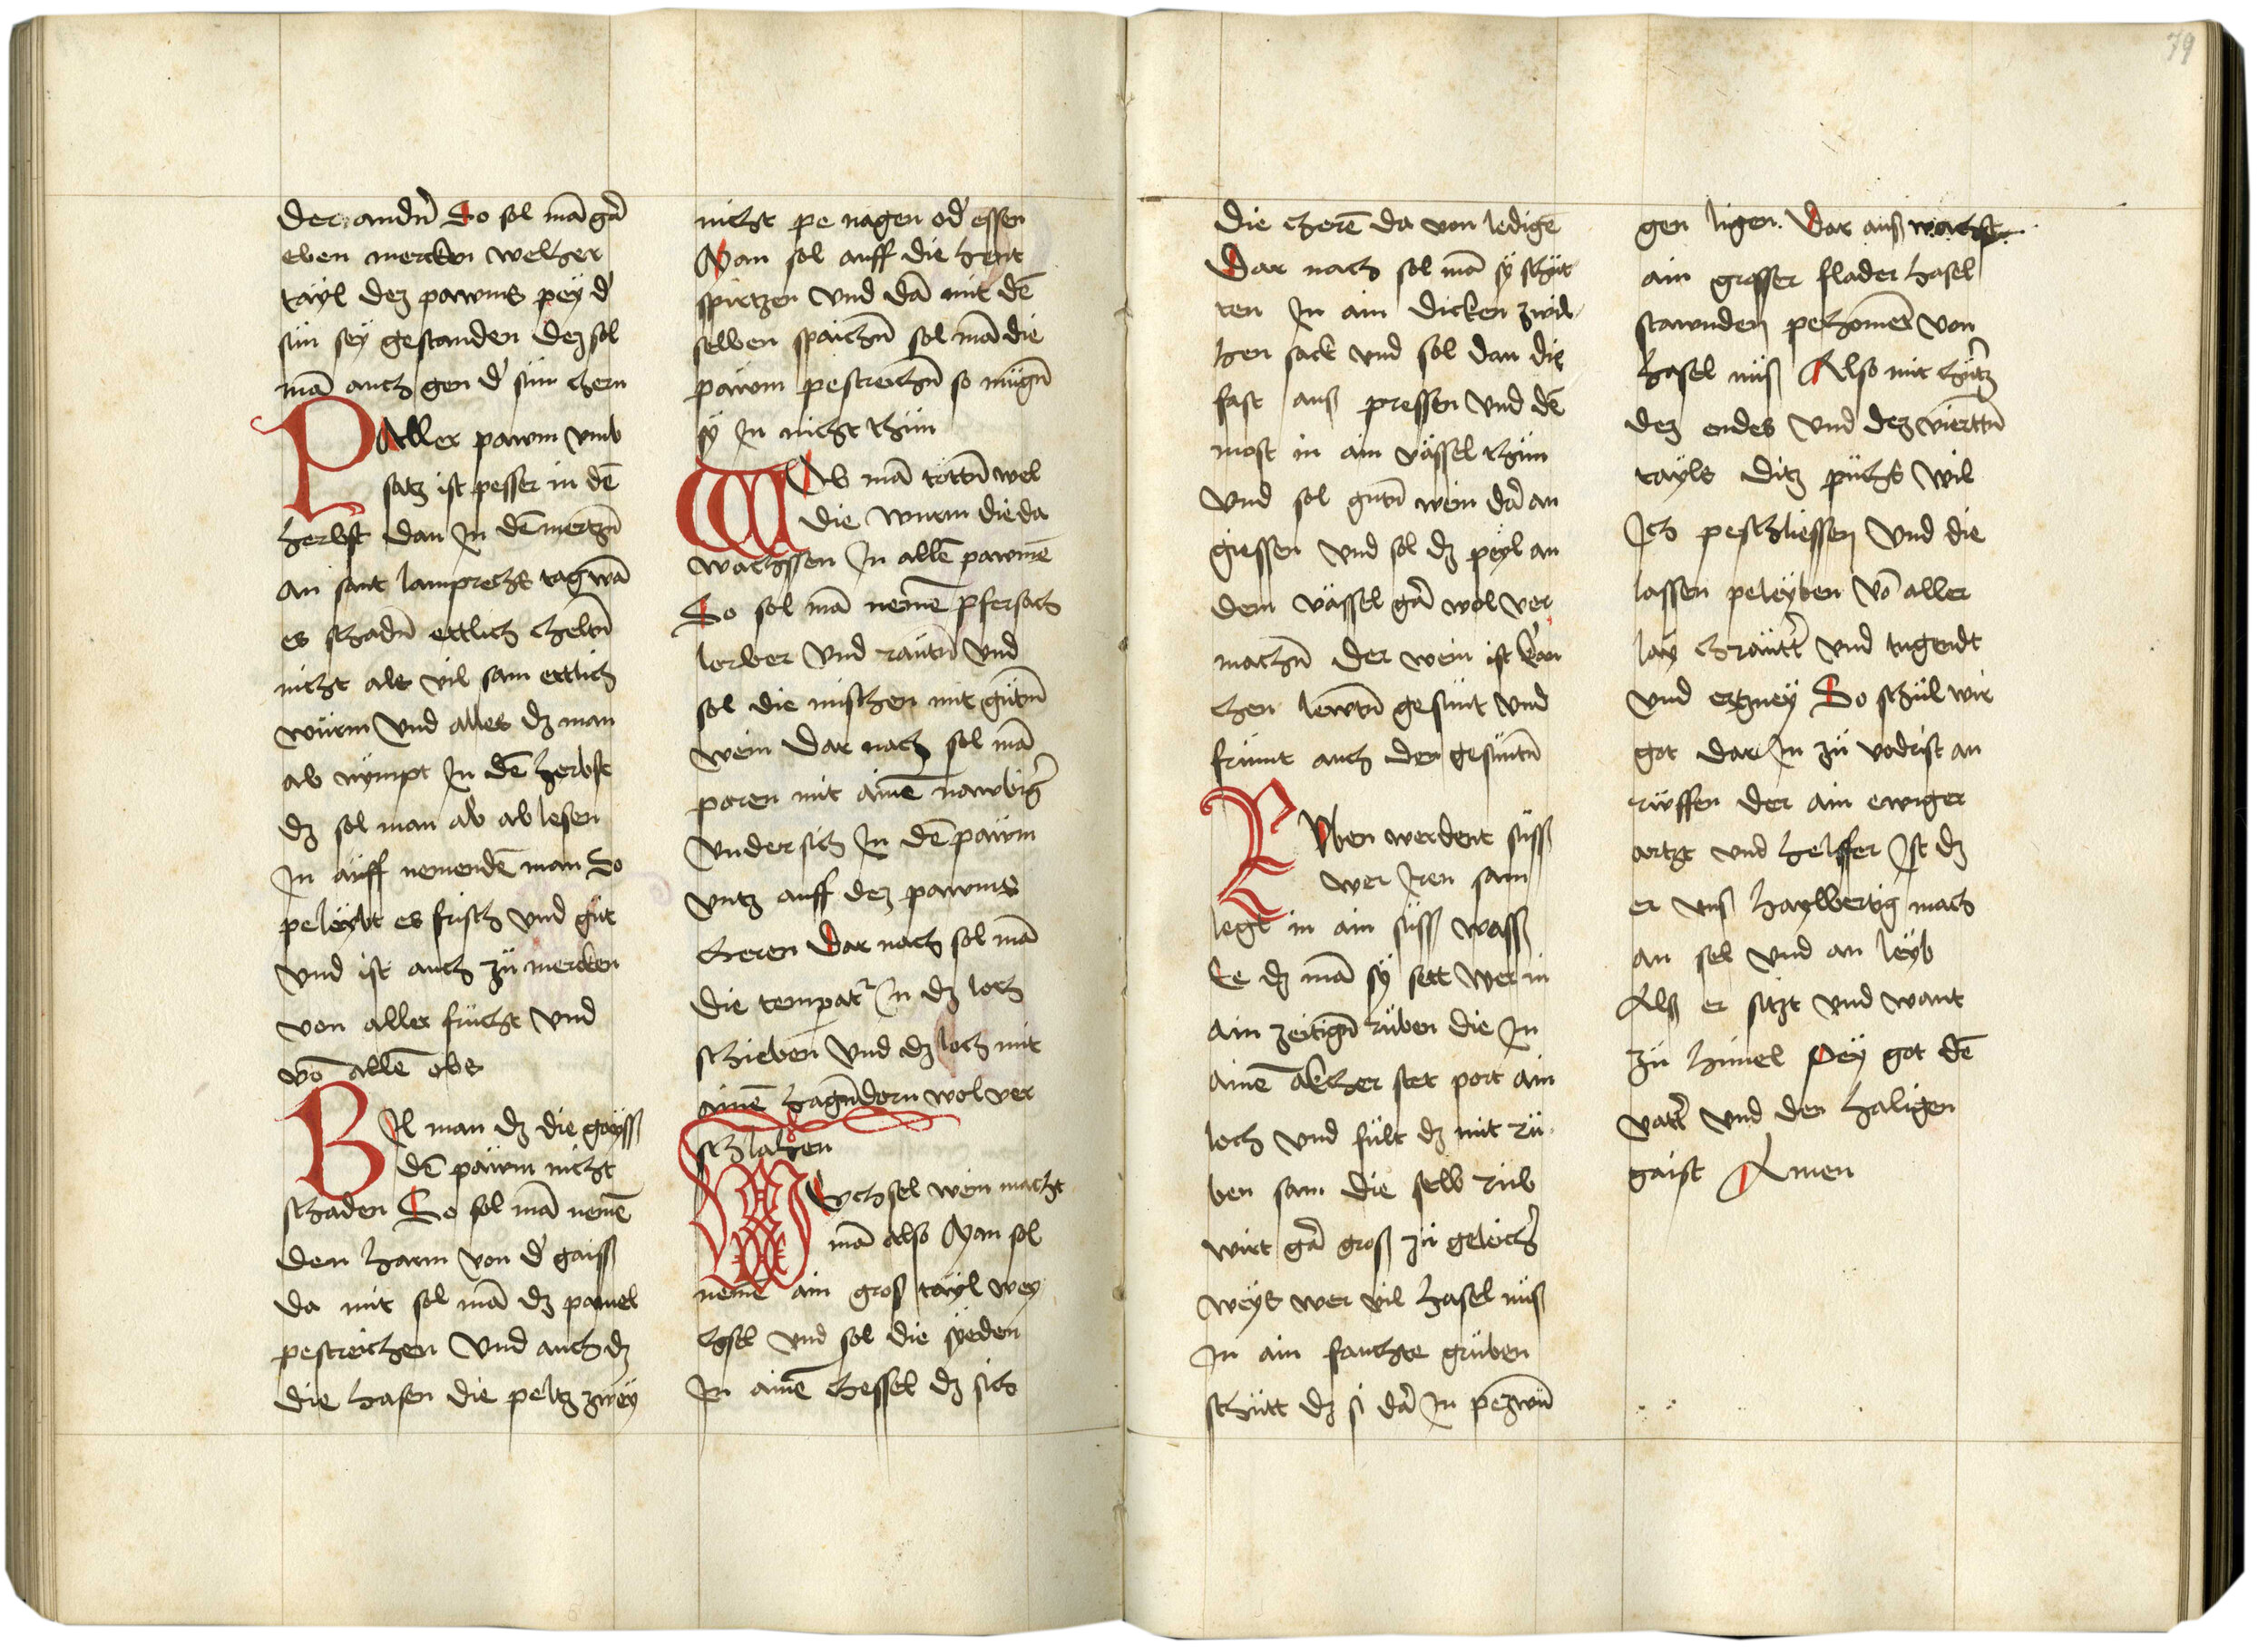 79
der andn̄ So sol mā gar̄
eben mercken welher
tayl dez pawms pey d'
sün sey gestanden dez sol
mā auch gen d' sün chern
P Aller pawm vmb
satz ist pesser in dē
herbst dan In dē mertzn̄
an sant lamprechts tag wā
es schadn̄ ettlich cheltn̄
nicht als vil sam ettlich
würm vnd alles dz man
ab nympt In dē herbst
dz sol man ab ab lesen
In auff nemendē man So
peleybt es frisch vnd güt
vnd ist auch zü mercken
von aller frücht vnd
vō allē obs
B Il man dz die gayss
dē pawm nicht
schaden So sol mā nemē
den harm von d' gaiss
da mit sol mā dz pawmel
pestreichen Vnd auch dz
die hasen die peltz zwey
nicht pe nagen od' essen
Man sol auff die hent
spirtzen vnd dā mit dē
selben spaichn̄ sol mā die
pawm pestreichn̄ so mügn̄
sy In nicht thün
Ob mā töttn̄ wel
die wurm die da
wachssen In allē pawmē
So sol mā nemē pfersach
lorber vnd rautn̄ vnd
sol die mischen mit gütn̄
wein Dar nach sol mā
poren mit ainē nawbig'
vndersich In dē pawm
vntz auff dez pawms
cheren Dar nach sol mā
die tempat' In dz loch
schieben vnd dz loch mit
ainē hagn̄dorn wol ver
schlahen
W Eychsel wein macht
mā also Man sol
nemē ain gros tayl wey
chsel vnd sol die syeden
In ainē chessel dz sich
die cherē da von ledigē
Dar nach sol mā sy schüt
ten In ain dicken zwil
hen sack vnd sol dan die
fast aus pressen vnd dē
most in ain vässel thün
Vnd sol gutn̄ wein dar̄ an
giessen vnd sol dz peyl an
dem vässel gar̄ wol ver
machn̄ der wein ist kran
chen lewtn̄ gesünt vnd
frümt auch den gesüntn̄
R Vben werdent süss
wer Iren sam
legt in ain süss wass
er dz mā sy sett wer in
ain zeitign̄ rüben die In
ainē akcher stet port ain
loch vnd fült dz mit rü
ben sam die selb rüb
wirt gar̄ gros zü geleich'
weys wer vil hasel nüs
In ain fauchte grüben
schütt dz si dar̄ In pezwn̄
gen ligen. Dar aus wachst
ain grosser flader hasel
stawnden pechomes von
hasel nüs Also mit chürtz
dez endes vnd dez vierttn̄
tayls ditz püchs wil
Ich peschliessen Vnd die
lassen peleyben vō aller
lay chrautt' vnd tugendt
vnd ertzney So schül wir
got dar In zü vodrist an
rüffen der ain ewiger
artzt vnd helffer Ist dz
er vns haylbertig mach
an sel vnd an leyb
Als er sitzt vnd want
zü himel Pey got dē
vatt' vnd den haligen
gaist Amen